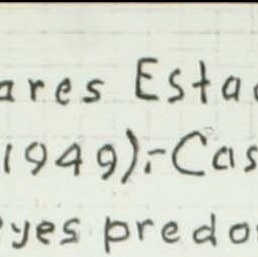 ares Esta
1949):-Cas
eyes predo